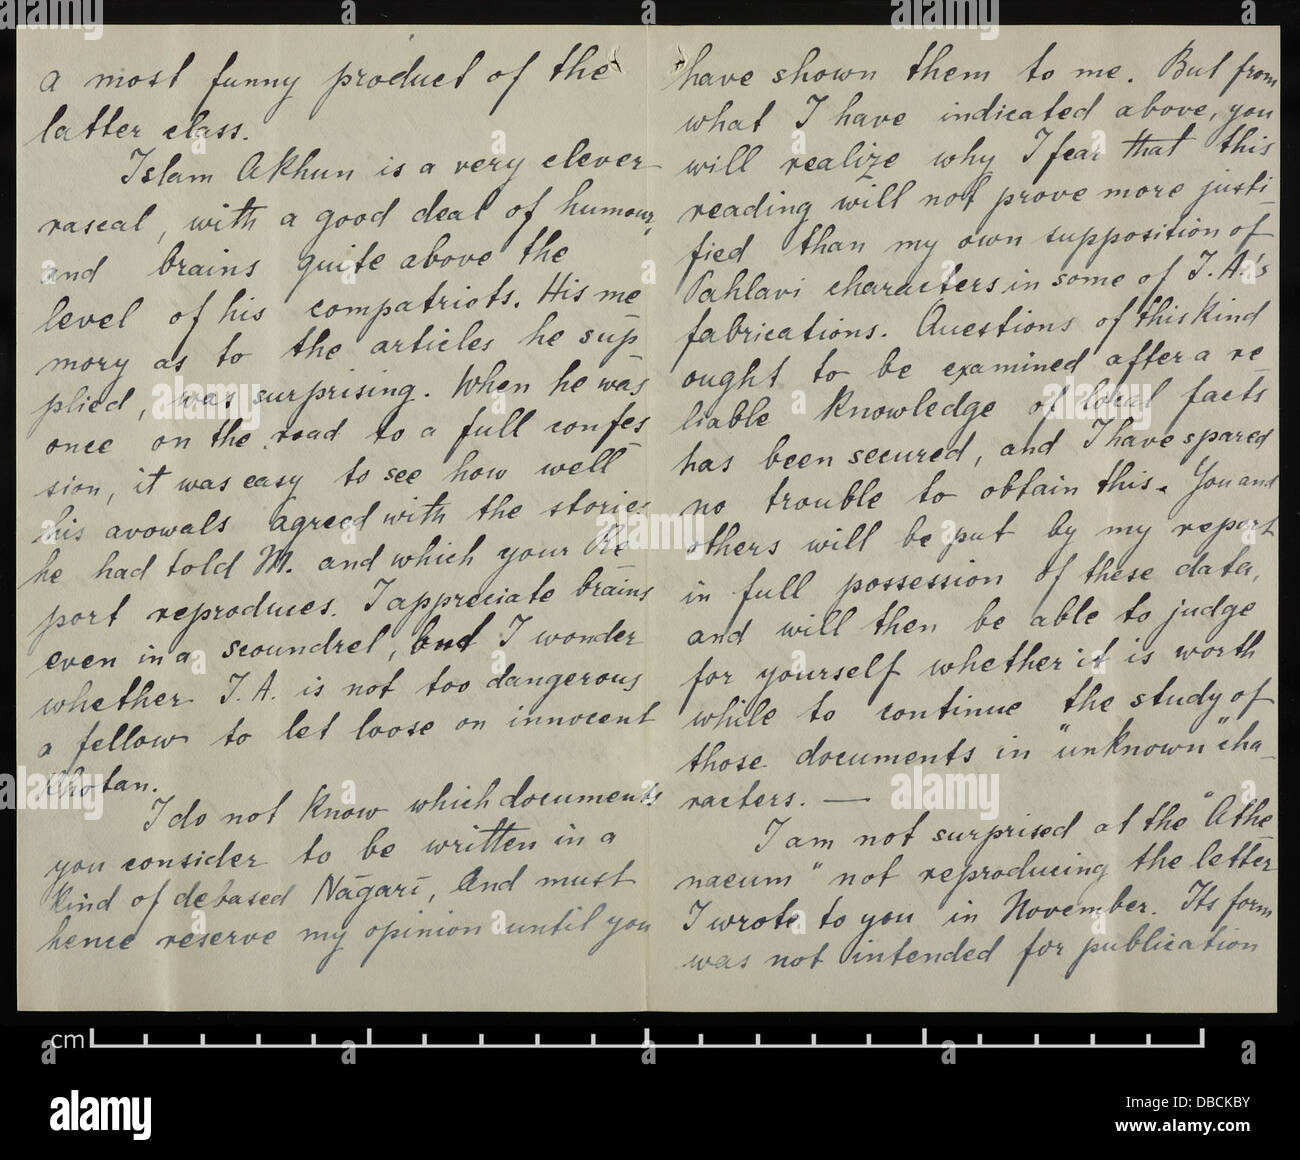 a most funny product of the
latter class.
Islam Akhun is a very clever
rascal, with a good deal of humour,
and brains quite above the
level of his compatriots. His me
mory as to the articles he sup
plied, was surprising. When he was
once on the road to a full confes
sion, it was easy to see how well
his avowals agreed with the stories
he had told M. and which your Re
port reproduces. I appreciate brains
even in a scoundrel, and I wonder
whether I. A. is not too dangerous
a fellow to let loose on innocent
Khotan.
I do not know which documents
you consider to be written in a
kind of debased Nāgarī, and must
hence reserve my opinion until you
have shown them to me. But from
what I have indicated above, you
will realize why I fear that this
reading will not prove more justi-
fied than my own supposition of
Pahlavi characters in some of I. A.'s
fabrications. Questions of this kind
ought to be examined after a re
liable knowledge of local facts
has been secured, and I have spared
no trouble to obtain this. You and
others will be put by my report
in full possession of these data,
and will then be able to judge
for yourself whether it is worth
while to continue the study of
those documents in "unknown" cha-
racters. —
I am not surprised at the "Athe
naeum" not reproducing the letter
I wrote to you in November. Its form
was not intended for publication
cm
alamy
DBCKBY
www.alamy.com